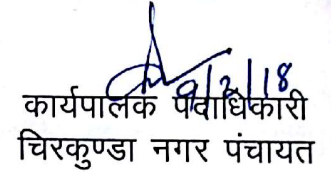 9/2/18
कार्यपालक पदाधिकारी
चिरकुण्डा नगर पंचायत